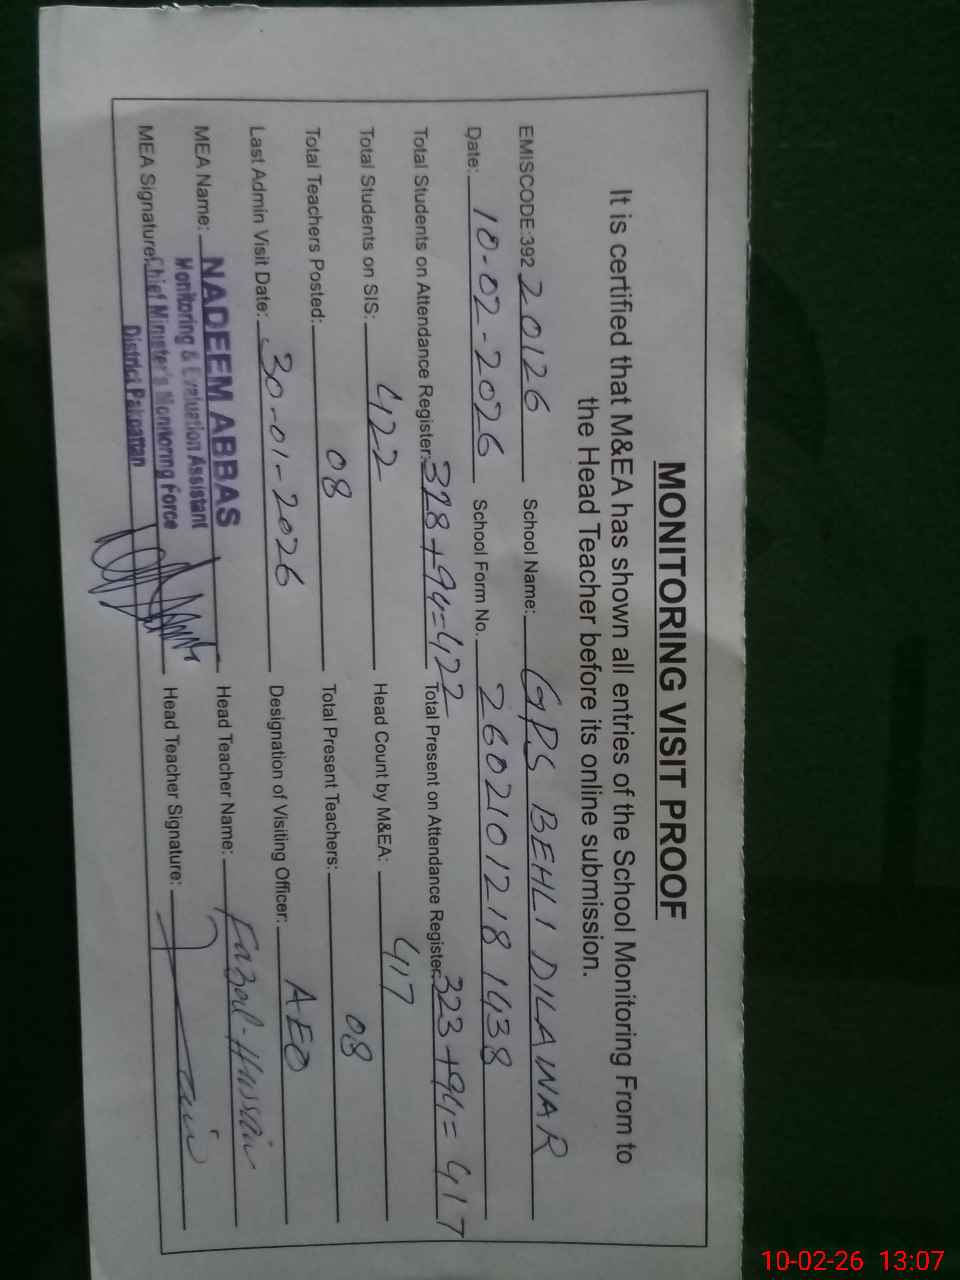 MONITORING VISIT PROOF
It is certified that M&EA has shown all entries of the School Monitoring From to
the Head Teacher before its online submission.
EMISCODE:392 20126 School Name: GPS BEHLI DILAWAR
Date: 10-02-2026 School Form No. 26021012181438
Total Students on Attendance Register: 328+94=422 Total Present on Attendance Register: 323+94=417
Total Students on SIS: 422 Head Count by M&EA: 417
Total Teachers Posted: 08 Total Present Teachers: 08
Last Admin Visit Date: 30-01-2026 Designation of Visiting Officer: AEO
MEA Name: NADEEM ABBAS Head Teacher Name: Fazal-Hussain
Monitoring & Evaluation Assistant
MEA Signature: Chief Minister's Monitoring Force Head Teacher Signature:
District Pakpattan
10-02-26 13:07